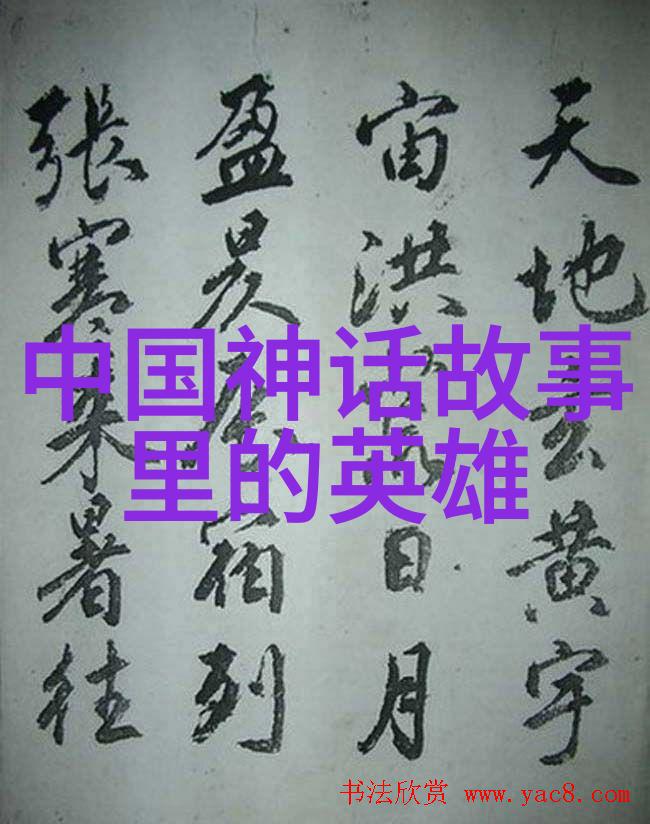 天地玄黄宇
宙洪荒日月
盈昃辰宿列
張寒来暑往
中国神话故事
里的英雄
书法欣赏 www.yac8.com